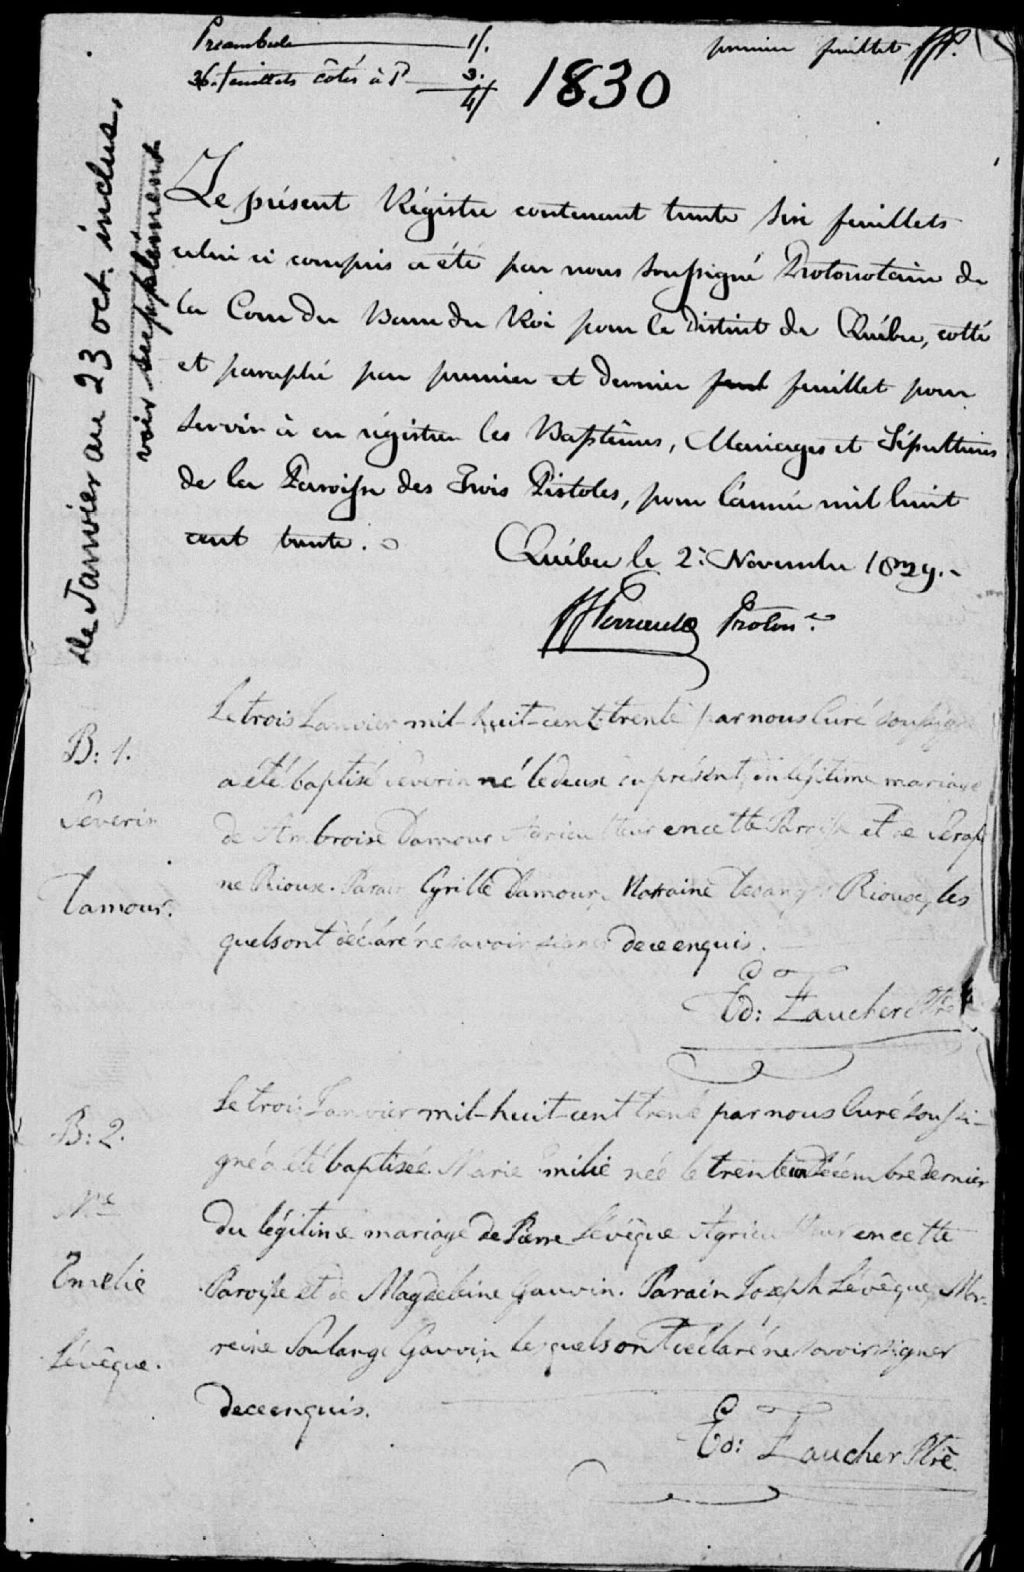 Préambule 1/.
36. feuillets côtés à P 3.
4/
premier feuillet JFP.
1830
de Janvier au 23 oct. inclus.
voir supplément
Le présent Régistre contenant trente six feuillets
celui ci compris a été par nous soussigné Protonotaire de
la Cour du Banc du Roi pour le District de Québec, cotté
et paraphé par premier et dernier feuillet pour
servir à en régistrer les Baptêmes, Mariages et Sépultures
de la Paroisse des Trois Pistoles, pour l'année mil huit
cent trente.
Québec le 2. Novembre 1829.
JFPerrault Proton.e
B: 1.
Severin
Damour.
Le trois Janvier mil-huit-cent-trente par nous Curé soussigné
a été baptisé Severin né le deux du présent, du légitime mariage
de Ambroise Damour Agriculteur en cette Paroisse et de Seraphi
ne Rioux. Parain Cyrille Damour, Maraine Desanges Rioux, les
quels ont déclaré ne savoir signer de ce enquis.
Ed: Faucher Ptre
B: 2.
Mie
Emelie
Lévêque.
Le trois Janvier mil-huit-cent trente par nous Curé soussi-
gné a été baptisée Marie Emilie née le trente un Décembre dernier
du légitime mariage de Pierre Lévêque Agriculteur en cette
Paroisse et de Magdeleine Gauvin. Parain Joseph Lévêque, Ma-
reine Soulange Gauvin lesquels ont déclaré ne savoir signer
de ce enquis.
Ed: Faucher Ptre